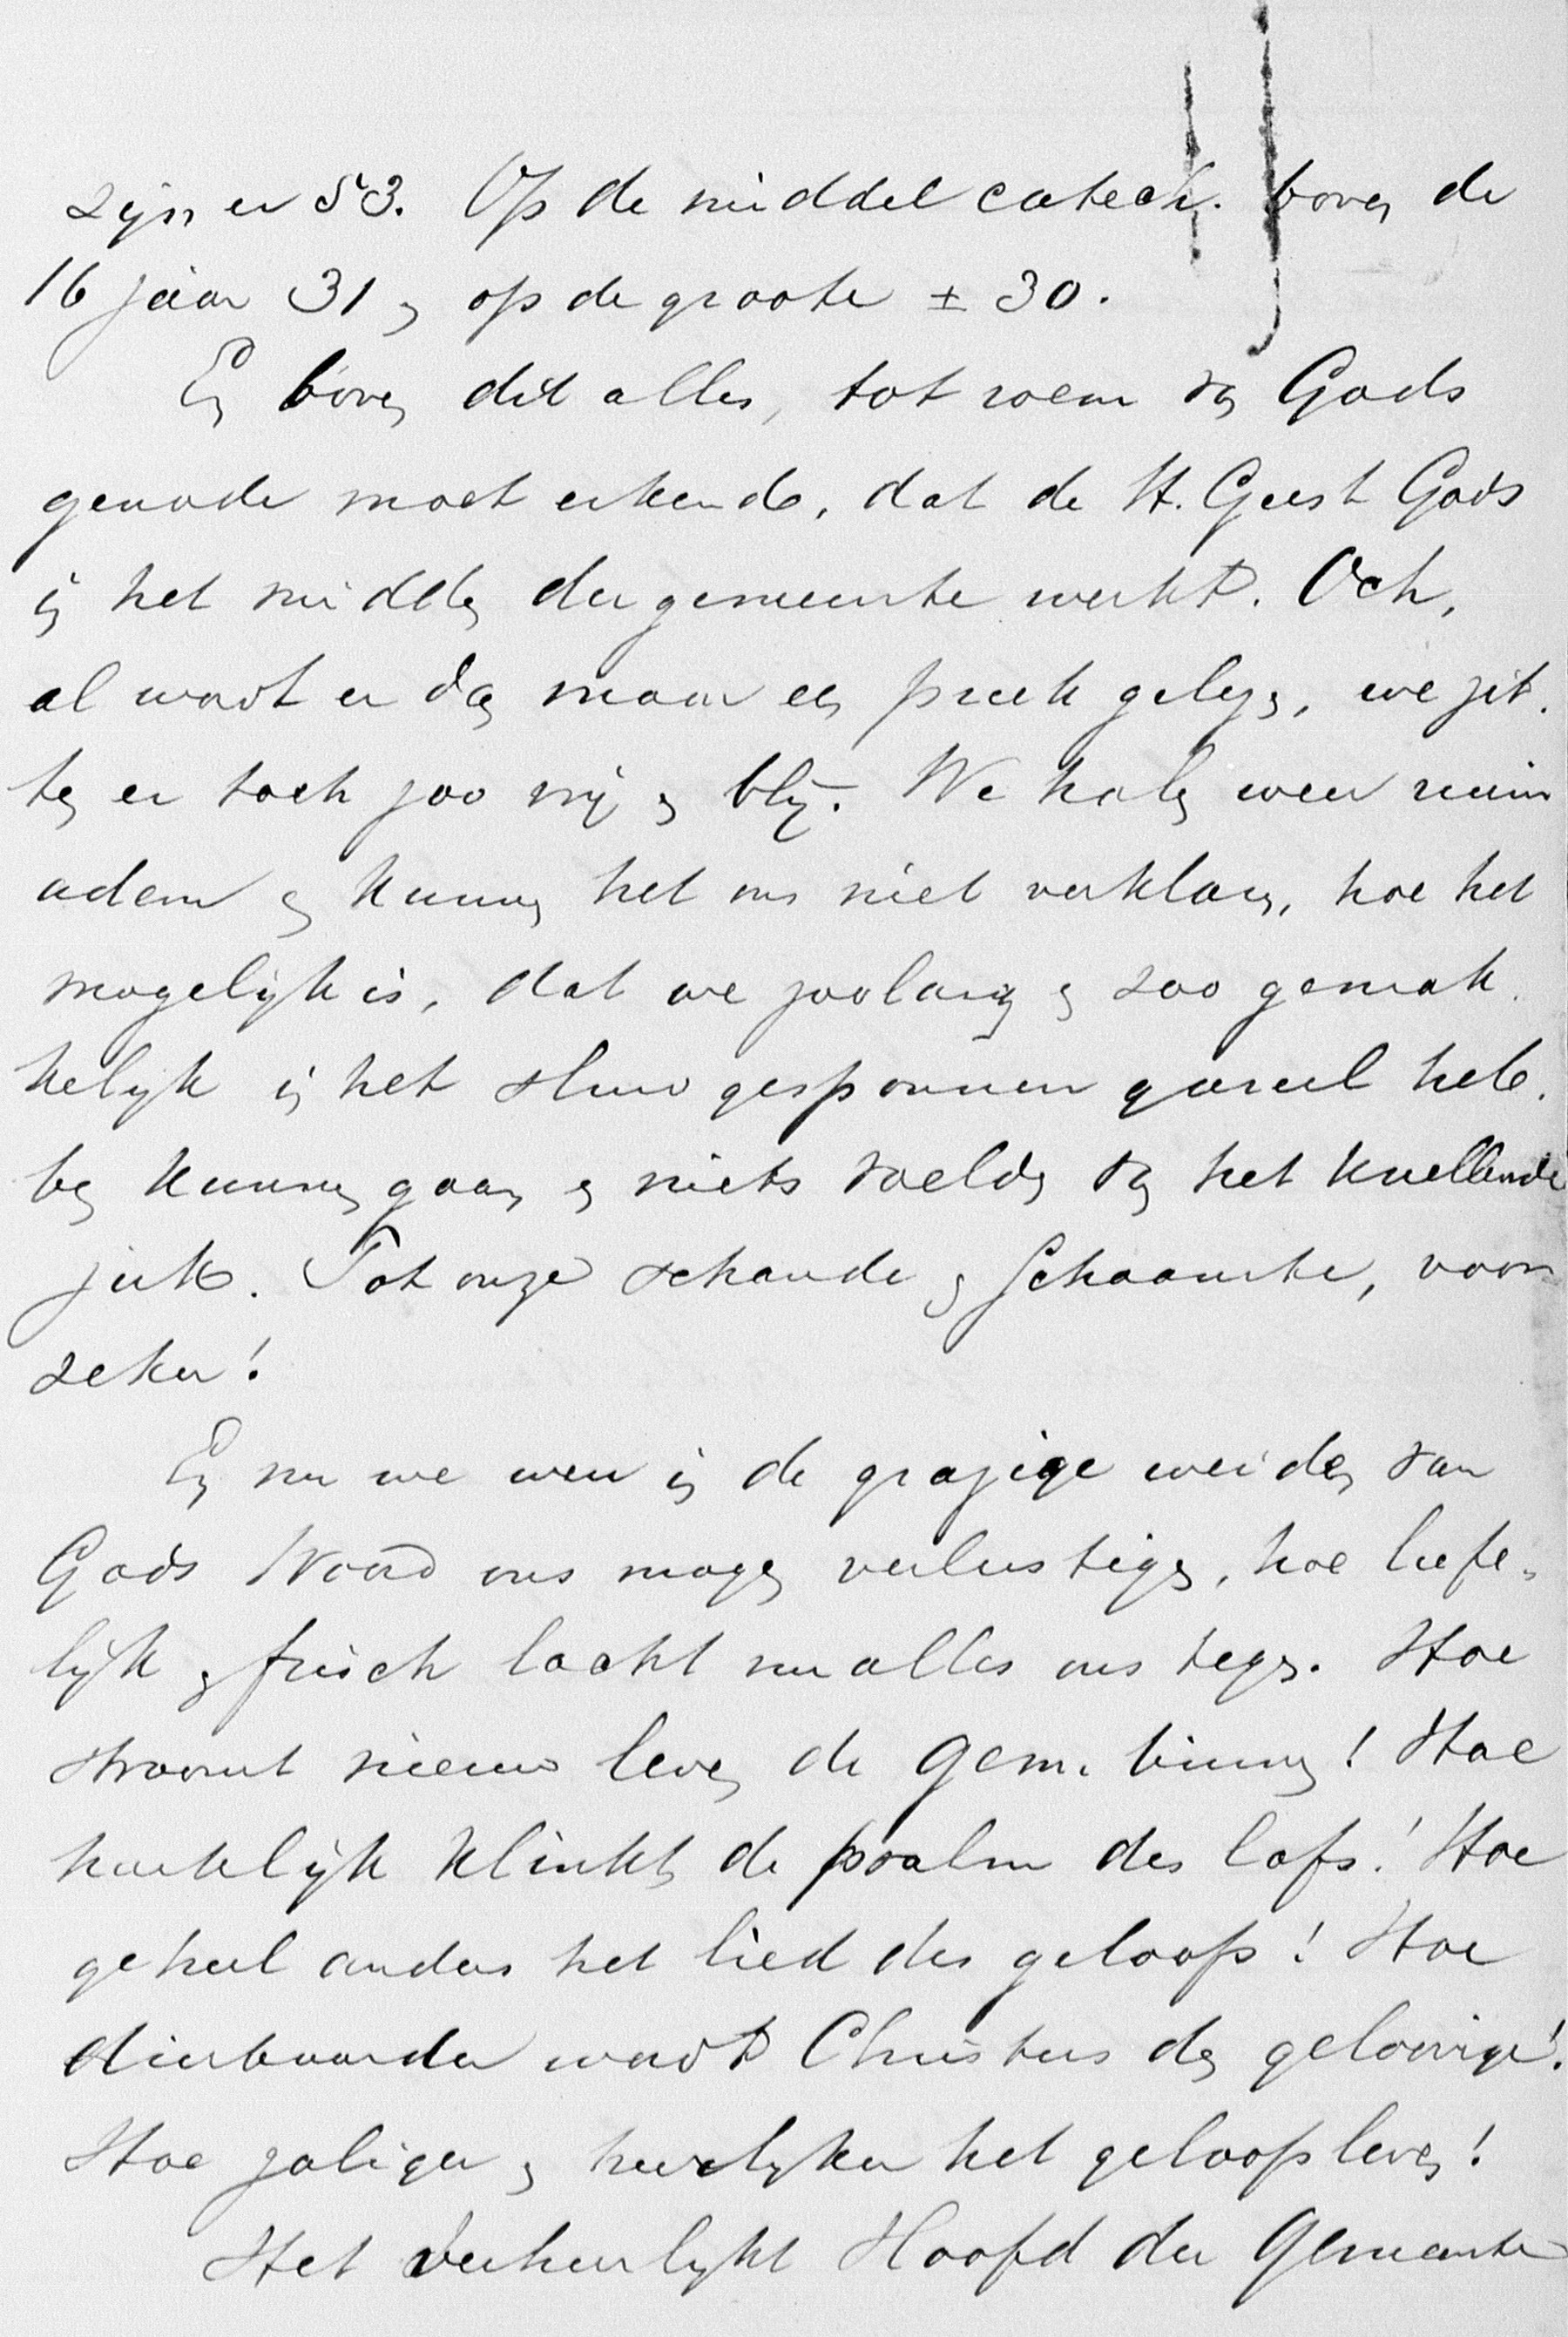 zijn er 53. Op de middel catech. boven de
16 jaar 31 en op de groote ± 30.
En boven dit alles, tot roem van Gods
genade moet erkend, dat de H. Geest Gods
in het midden der gemeente werkt. Och,
al wordt er dan maar een preek gelezen, we zit-
ten er toch zoo vrij en blij. We halen weer ruim
adem en kunnen het ons niet verklaren, hoe het
mogelijk is, dat we zoolang en zoo gemak-
kelijk in het sluw gesponnen gareel heb-
ben kunnen gaan en niets voelden van het knellende
juk. Tot onze schande en schaamte, voor
zeker!
En nu we weer in de grazige weiden van
Gods Woord ons mogen verlustigen, hoe liefe-
lijk en frisch lacht nu alles ons tegen. Hoe
stroomt nieuw leven de gem. binnen! Hoe
hartelijk klinkt de psalm des lofs! Hoe
geheel anders het lied des geloofs! Hoe
dierbaarder wordt Christus den geloovige!
Hoe zaliger en heerlijker het geloofsleven!
Het verheerlijkt Hoofd der Gemeente